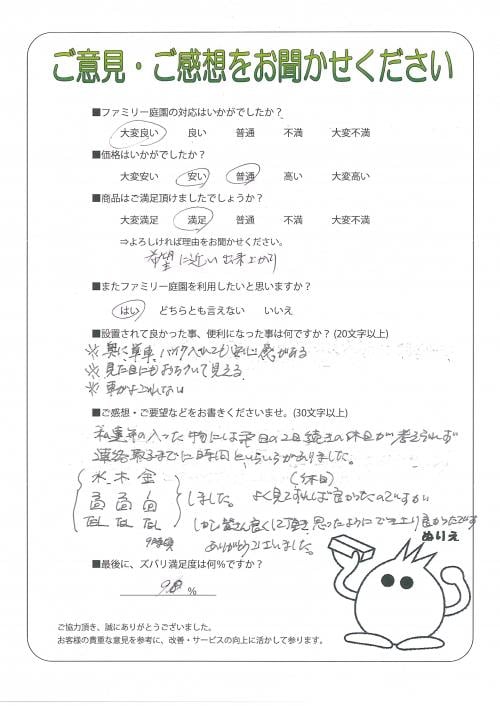 ご意見・ご感想をお聞かせください
■ファミリー庭園の対応はいかがでしたか？
大変良い 良い 普通 不満 大変不満
■価格はいかがでしたか？
大変安い 安い 普通 高い 大変高い
■商品はご満足頂けましたでしょうか？
大変満足 満足 普通 不満 大変不満
⇒よろしければ理由をお聞かせください。
希望に近い出来上がり
■またファミリー庭園を利用したいと思いますか？
はい どちらとも言えない いいえ
■設置されて良かった事、便利になった事は何ですか？(20文字以上)
※奥に単車、バイク入れても安心感がある
※見た目にもおちついて見える
※車がよごれない
■ご感想・ご要望などをお書きくださいませ。(30文字以上)
の入った物には平日の2日続きの休日が考えられず
連絡取るまでに時間といらいらがありました。
水 木 金 (休日)
TEL TEL TEL しました。よく見てすれば良かったのですが
しかし皆さん良くして頂き思ったようにでき上り良かったです
ありがとうございました。
■最後に、ズバリ満足度は何％ですか？
98 %
ぬりえ
ご協力頂き、誠にありがとうございました。
お客様の貴重な意見を参考に、改善・サービスの向上に活かして参ります。